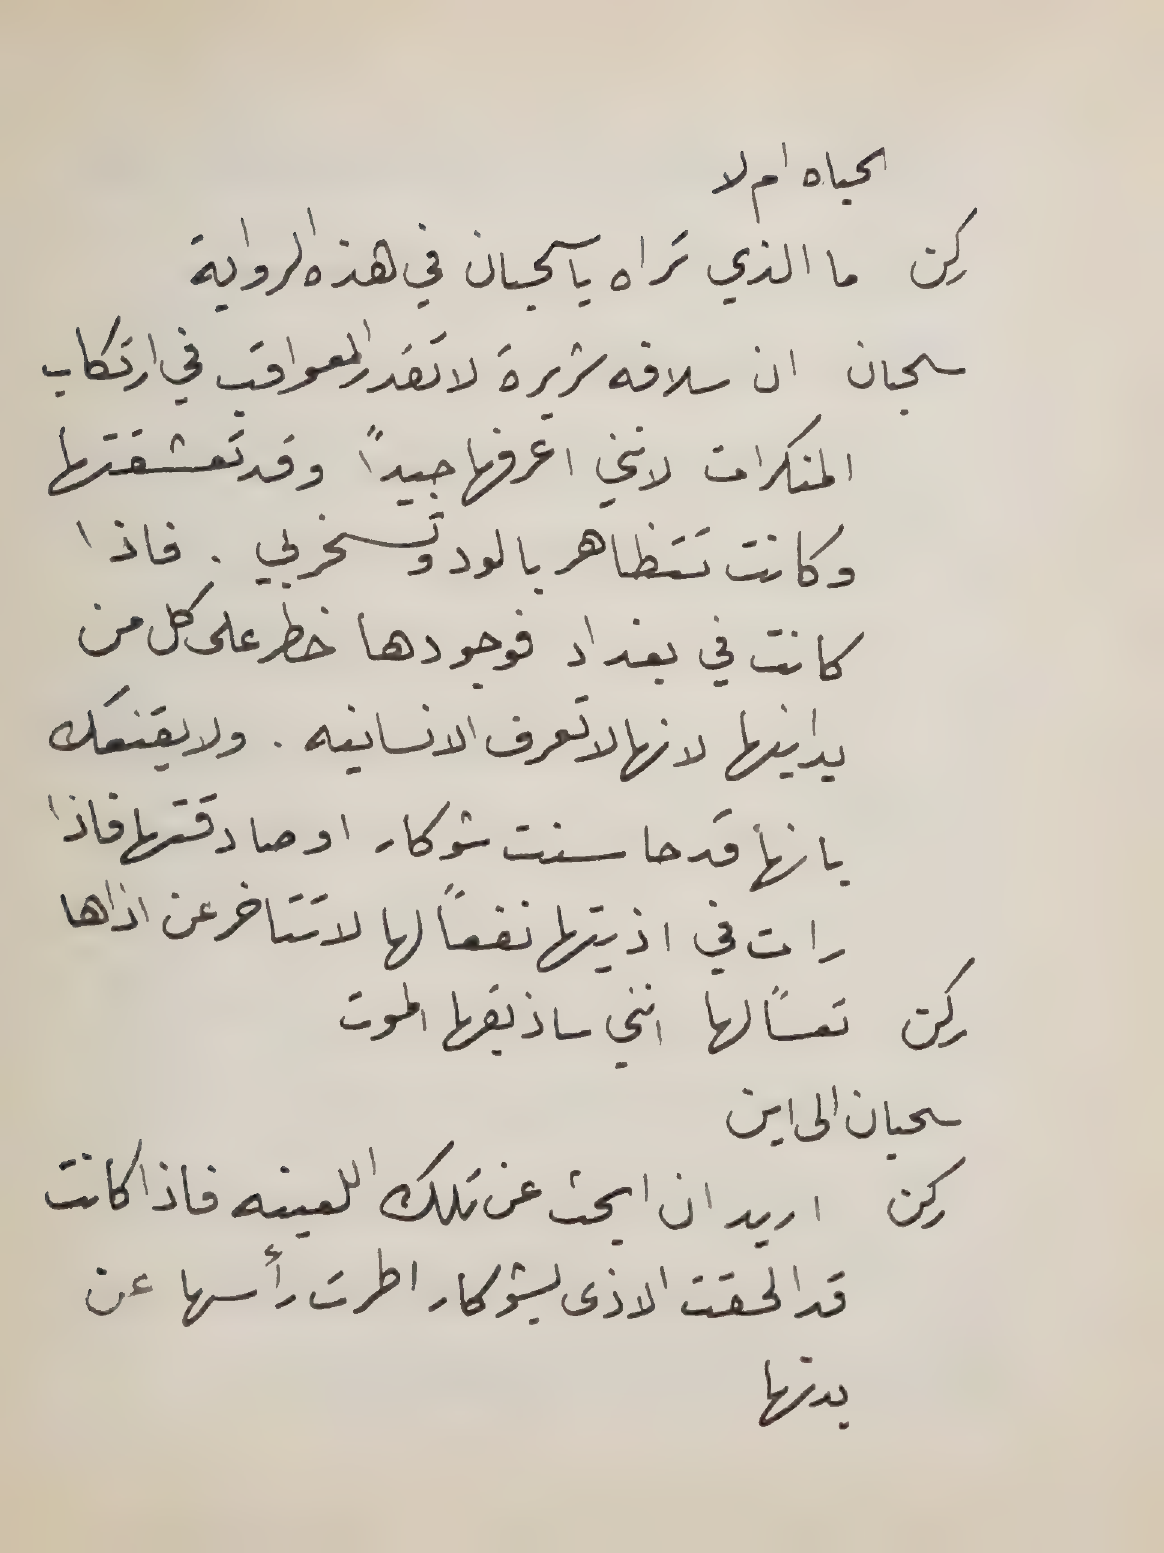 الحياه ام لا
ركن ما الذي تراه يا سحبان في هذه الرواية
سحبان ان سلافه شريرة لا تقدر العواقب في ارتكاب
المنكرات لانني اعرفها جيداً وقد تعشقتها
وكانت تتظاهر بالود وتسخر بي . فاذا
كانت في بغداد فوجودها خطر على كل من
يدانيها لانها لا تعرف الانسانيه . ولا يقنعك
بانها قد حاسنت شوكار او صادقتها فاذا
رات في اذيتها نفعاً لها لا تتاخر عن اذاها
ركن تعساً لها انني ساذيقها الموت
سحبان الى اين
ركن اريد ان ابحث عن تلك اللعينه فاذا كانت
قد الحقت الاذى بشوكار اطرت رأسها عن
بدنها